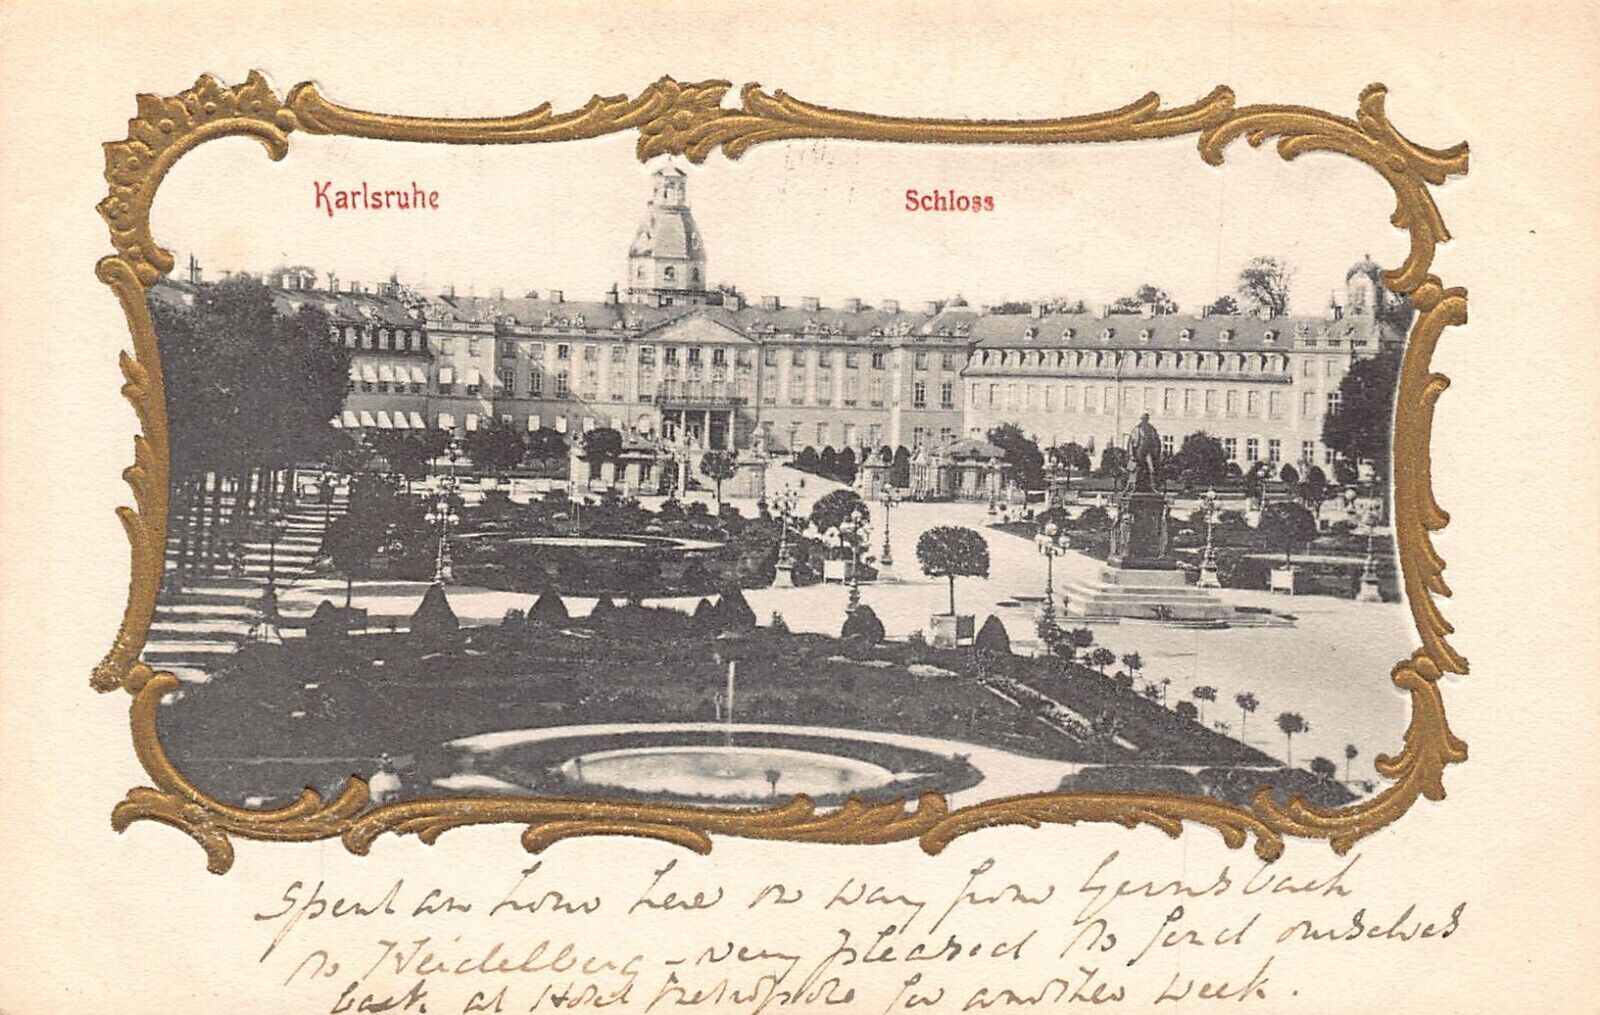 Karlsruhe
Schloss
Spent an hour here on way from Gernsbach
to Heidelberg - very pleased to find ourselves
back at Hotel Metropole for another week.